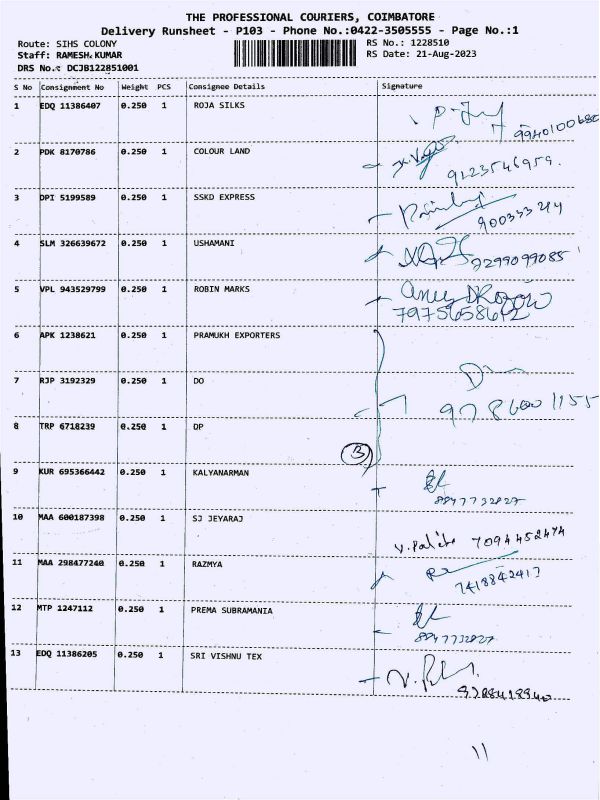 THE PROFESSIONAL COURIERS, COIMBATORE
Delivery Runsheet - P103 - Phone No.:0422-3505555 - Page No.:1
Route: SIHS COLONY RS No.: 1228510
Staff: RAMESH KUMAR RS Date: 21-Aug-2023
DRS No.: DCJB122851001
S No Consignment No Weight PCS Consignee Details Signature
1 EDQ 11386407 0.250 1 ROJA SILKS
9940100680
2 PDK 8170786 0.250 1 COLOUR LAND
9123546959.
3 DPI 5199589 0.250 1 SSKD EXPRESS
4 SLM 326639672 0.250 1 USHAMANI
7299099085
5 VPL 943529799 0.250 1 ROBIN MARKS
7975658642
6 APK 1238621 0.250 1 PRAMUKH EXPORTERS
7 RJP 3192329 0.250 1 DO
9786001155
8 TRP 6718239 0.250 1 DP
3
9 KUR 695366442 0.250 1 KALYANARMAN
8847732827
10 MAA 600187398 0.250 1 SJ JEYARAJ
7094452474
11 MAA 298477240 0.250 1 RAZMYA
7418842417
12 MTP 1247112 0.250 1 PREMA SUBRAMANIA
8847732827
13 EDQ 11386205 0.250 1 SRI VISHNU TEX
11